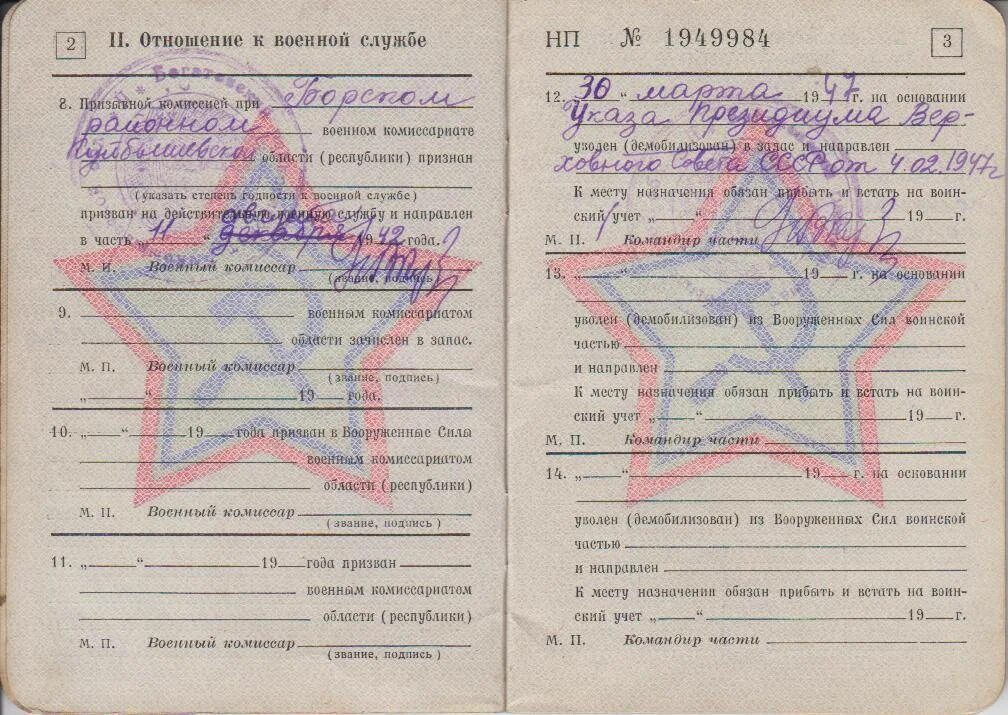 2
II. Отношение к военной службе
8. Призывной комиссией при Борском
районном военном комиссариате
Куйбышевской области (республики) признан
(указать степень годности к военной службе)
призван на действительную военную службу и направлен
в часть „11“ декабря 1942 года.
М. П. Военный комиссар
(звание, подпись)
9. военным комиссариатом
области зачислен в запас.
М. П. Военный комиссар
(звание, подпись)
„ “ 19 года.
10. „ “ 19 года призван в Вооруженные Силы
военным комиссариатом
области (республики)
М. П. Военный комиссар
(звание, подпись)
11. „ “ 19 года призван
военным комиссариатом
области (республики)
М. П. Военный комиссар
(звание, подпись)
НП № 1949984
3
12. „30“ марта 1947 г. на основании
Указа Президиума Вер-
уволен (демобилизован) в запас и направлен
ховного Совета СССР от 4.02.1947 г
К месту назначения обязан прибыть и встать на воин-
ский учет „ “ 19 г.
М. П. Командир части
13. „ “ 19 г. на основании
уволен (демобилизован) из Вооруженных Сил воинской
частью
и направлен
К месту назначения обязан прибыть и встать на воин-
ский учет „ “ 19 г.
М. П. Командир части
14. „ “ 19 г. на основании
уволен (демобилизован) из Вооруженных Сил воинской
частью
и направлен
К месту назначения обязан прибыть и встать на воин-
ский учет „ “ 19 г.
М. П. Командир части